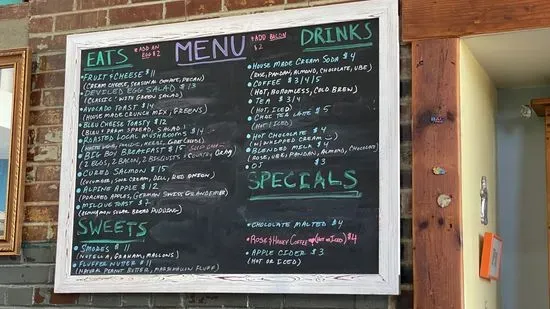 MENU
* ADD AN EGG $2
* ADD BACON $2
EATS
FRUIT & CHEESE $11
(CREAM CHEESE, SEASONAL COMPOTE, PECAN)
DEVILED EGG SALAD $13
(CLASSIC - WITH GREEN SALAD)
AVOCADO TOAST $14
(HOUSE MADE CRUNCH MIX, GREENS)
BLEU CHEESE TOASTY $12
(BLEU + PARM SPREAD, SALAD)
ROASTED LOCAL MUSHROOMS $14
BIG BOY BREAKFAST $15
(2 EGGS, 2 BACON, 2 BISQUITS & COUNTRY GRAVY)
CURED SALMON $15
(CUCUMBER, SOUR CREAM, DILL, RED ONION)
ALPINE APPLE $12
(POACHED APPLES, GERMAN SWISS GRANDEMERE)
MILQUE TOAST $7
(CINNAMON SUGAR BREAD PUDDING)
SWEETS
SMORES $11
(NUTELLA, GRAHAM, MALLOWS)
FLUFFER NUTTER $11
(NATURAL PEANUT BUTTER, MARSHMALLOW FLUFF)
DRINKS
HOUSE MADE CREAM SODA $4
(ROSE, PANDAN, ALMOND, CHOCOLATE, UBE)
COFFEE $3/4/5
(HOT, BOTTOMLESS, COLD BREW)
TEA $3/4
(HOT, ICED)
CHAI TEA LATTE $5
(HOT/ICED)
HOT CHOCOLATE $4
(W/ WHIPPED CREAM)
BLENDED MILK $4
(ROSE, UBE, PANDAN, ALMOND, CHOCOLATE)
OJ $3
SPECIALS
CHOCOLATE MALTED $4
ROSE & HONEY COFFEE (HOT OR ICED) $4
APPLE CIDER $3
(HOT OR ICED)